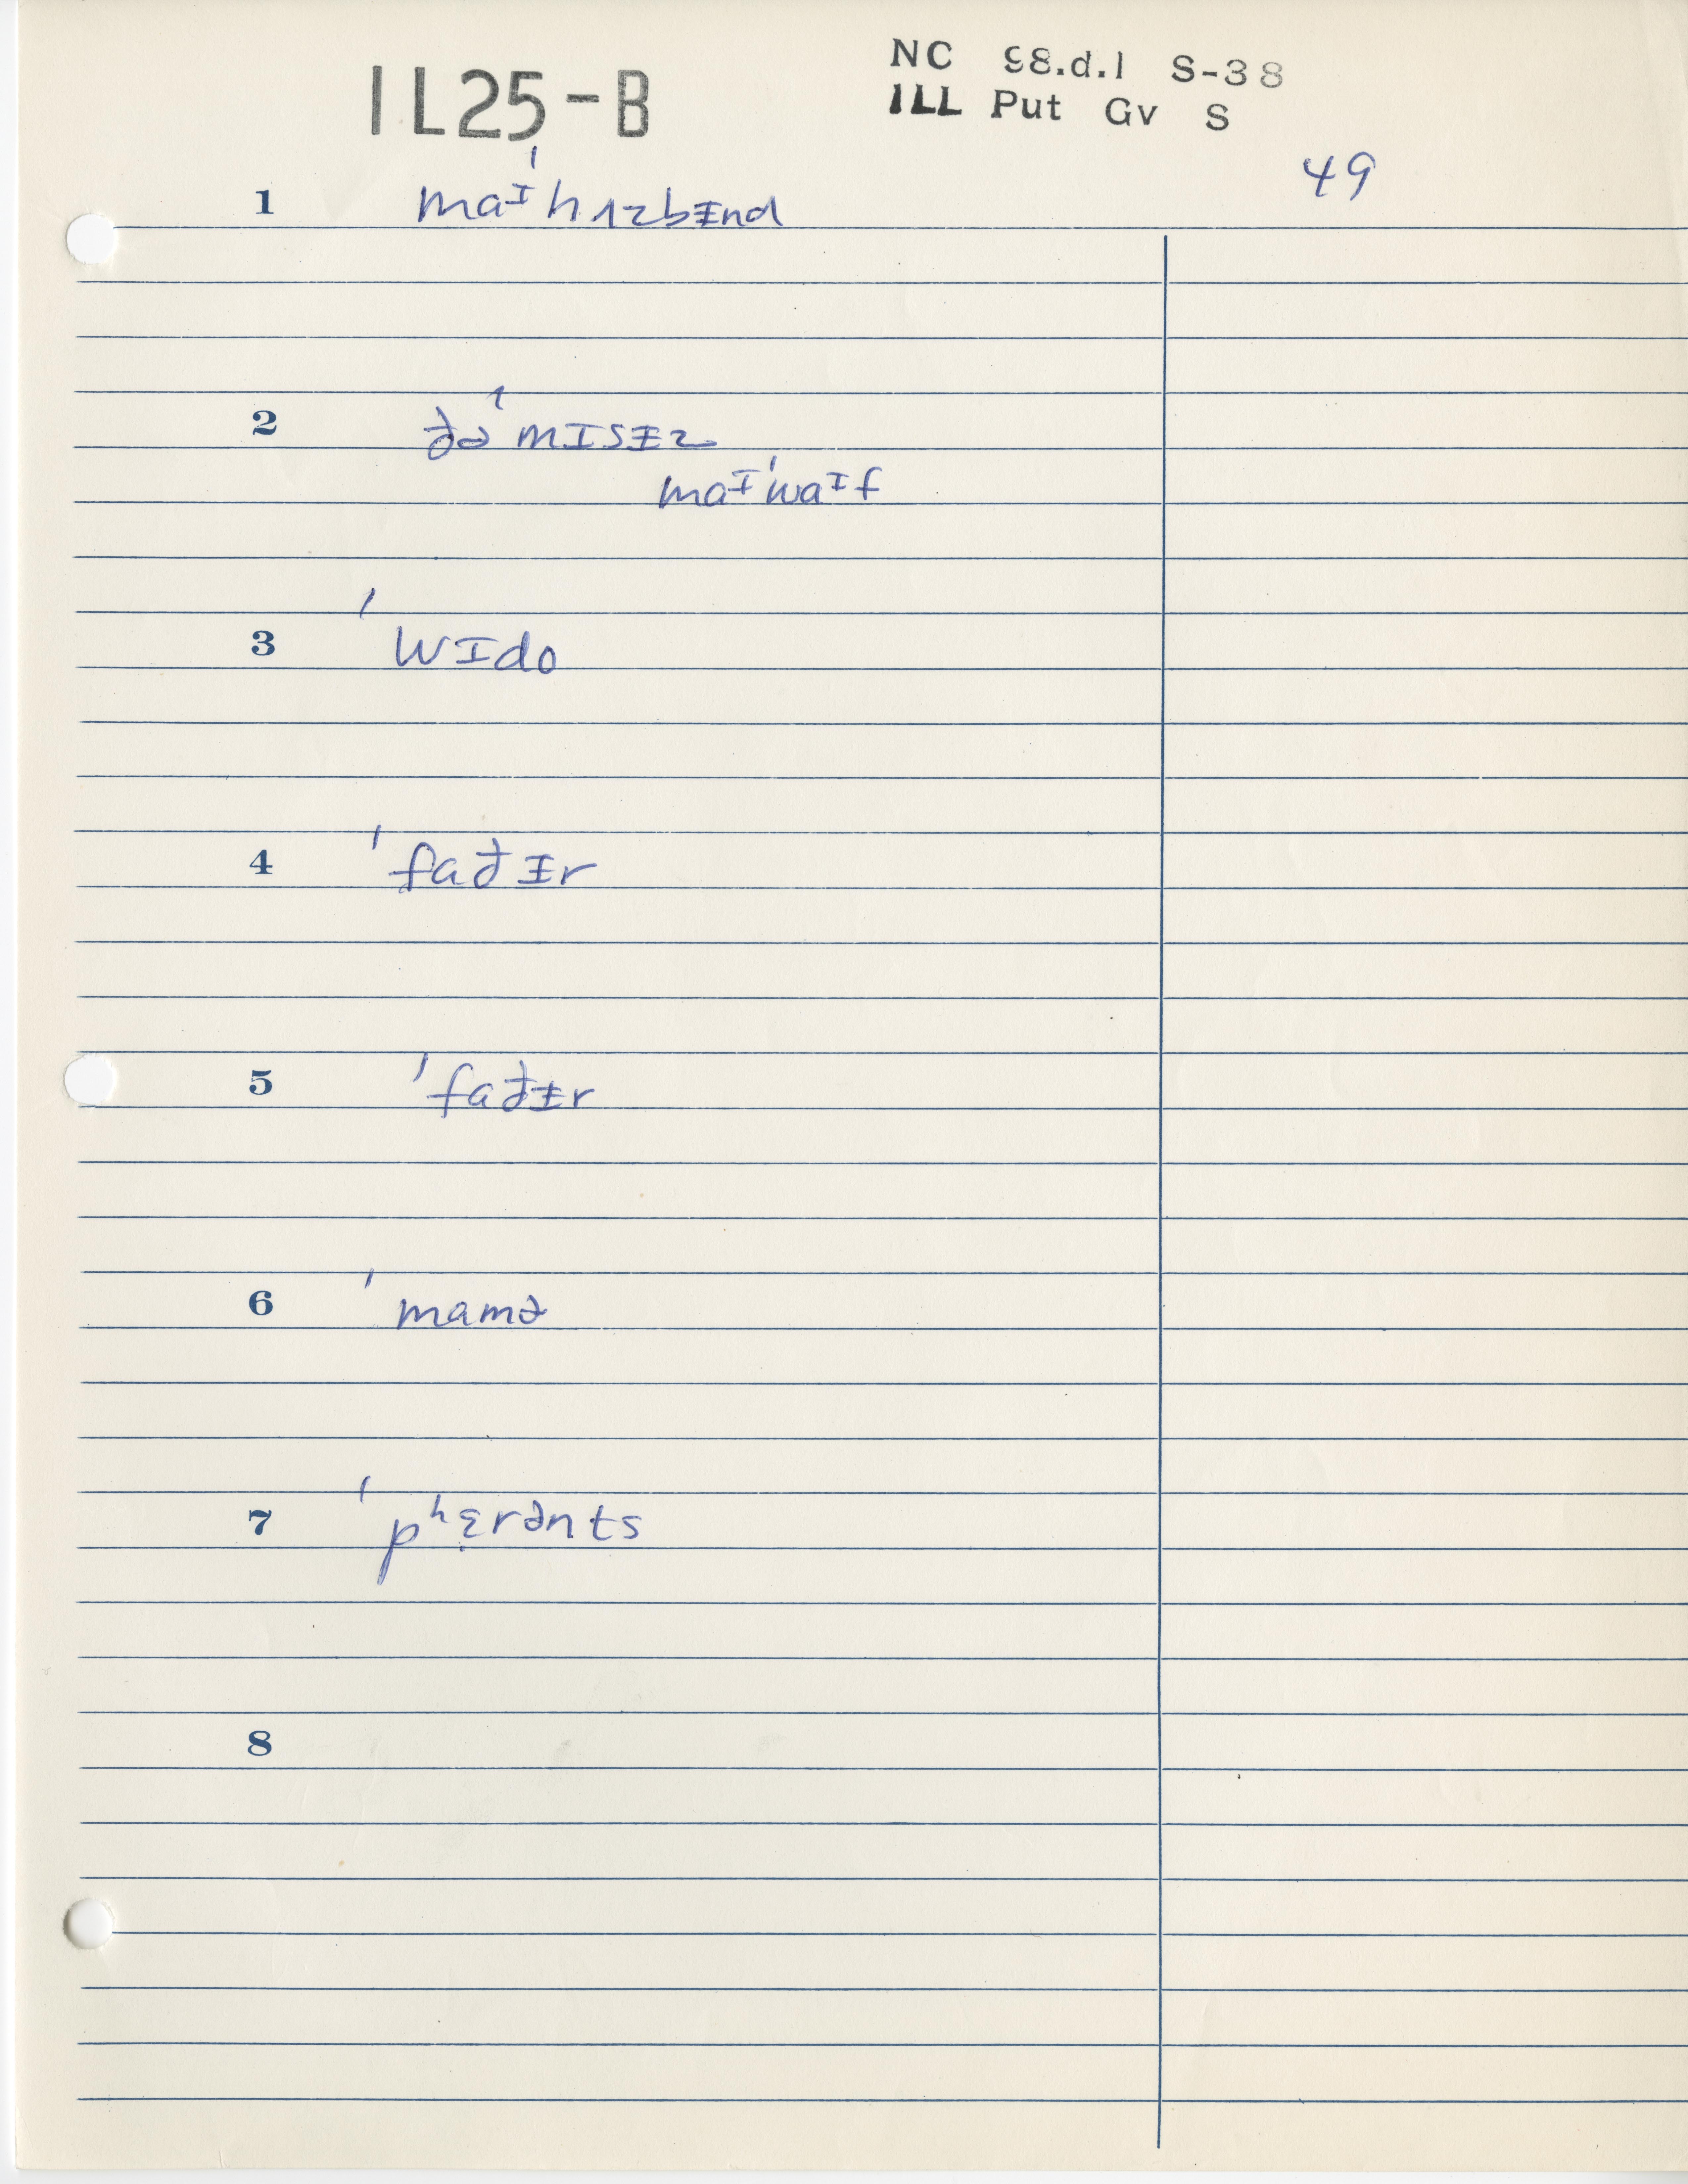 IL25-B
NC 98.d.1 S-38
ILL Put Gv S
49
1 maᴵ ˈhʌzbᵻnd
2 ðə ˈmɪsᵻz
maᴵ ˈwaᴵf
3 ˈwɪdo
4 ˈfaðᵻr
5 ˈfaðᵻr
6 ˈmamə
7 ˈpʰɛ̣rənts
8